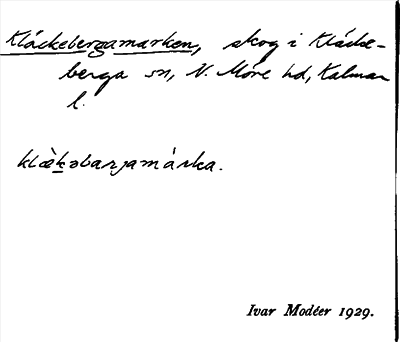 Kläckebergamarken, skog i Kläcke-
berga sn, N. Möre hd, Kalmar
l.
klæ̀k̲əbarjamárka.
Ivar Modéer 1929.